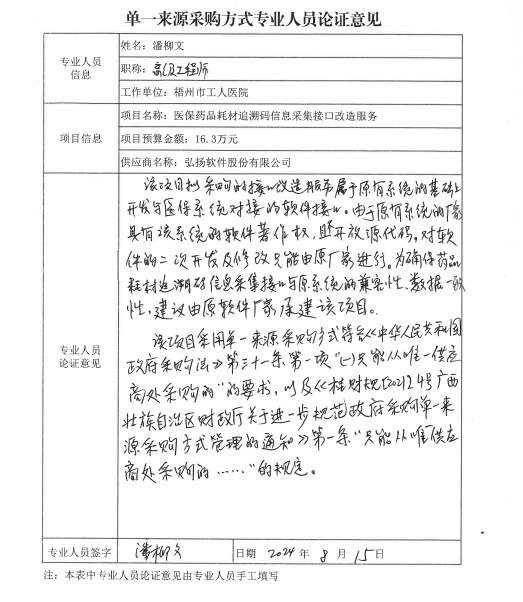 单一来源采购方式专业人员论证意见
专业人员信息
姓名：潘柳文
职称：高级工程师
工作单位：梧州市工人医院
项目信息
项目名称：医保药品耗材追溯码信息采集接口改造服务
项目预算金额：16.3万元
供应商名称：弘扬软件股份有限公司
专业人员论证意见
该项目拟采购的接口改造服务属于原有系统的基础上
开发与医保系统对接的软件接口。由于原有系统的厂家
具有该系统的软件著作权，且不开放源代码，对软
件的二次开发及修改只能由原厂家进行。为确保药品
耗材追溯码信息采集接口与原系统的兼容性、数据一致
性，建议由原软件厂家承建该项目。
该项目采用单一来源采购方式符合《中华人民共和国
政府采购法》第三十一条第一项“(一)只能从唯一供应
商处采购的”的要求，以及《桂财规[2021]4号广西
壮族自治区财政厅关于进一步规范政府采购单一来
源采购方式管理的通知》第一条“只能从唯一供应
商处采购的……”的规定。
专业人员签字 潘柳文 日期 2024 年 8 月 15 日
注：本表中专业人员论证意见由专业人员手工填写